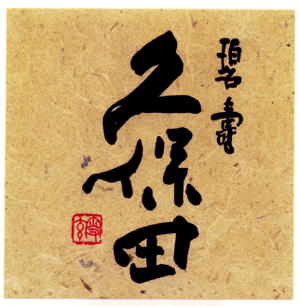 碧寿
久保田